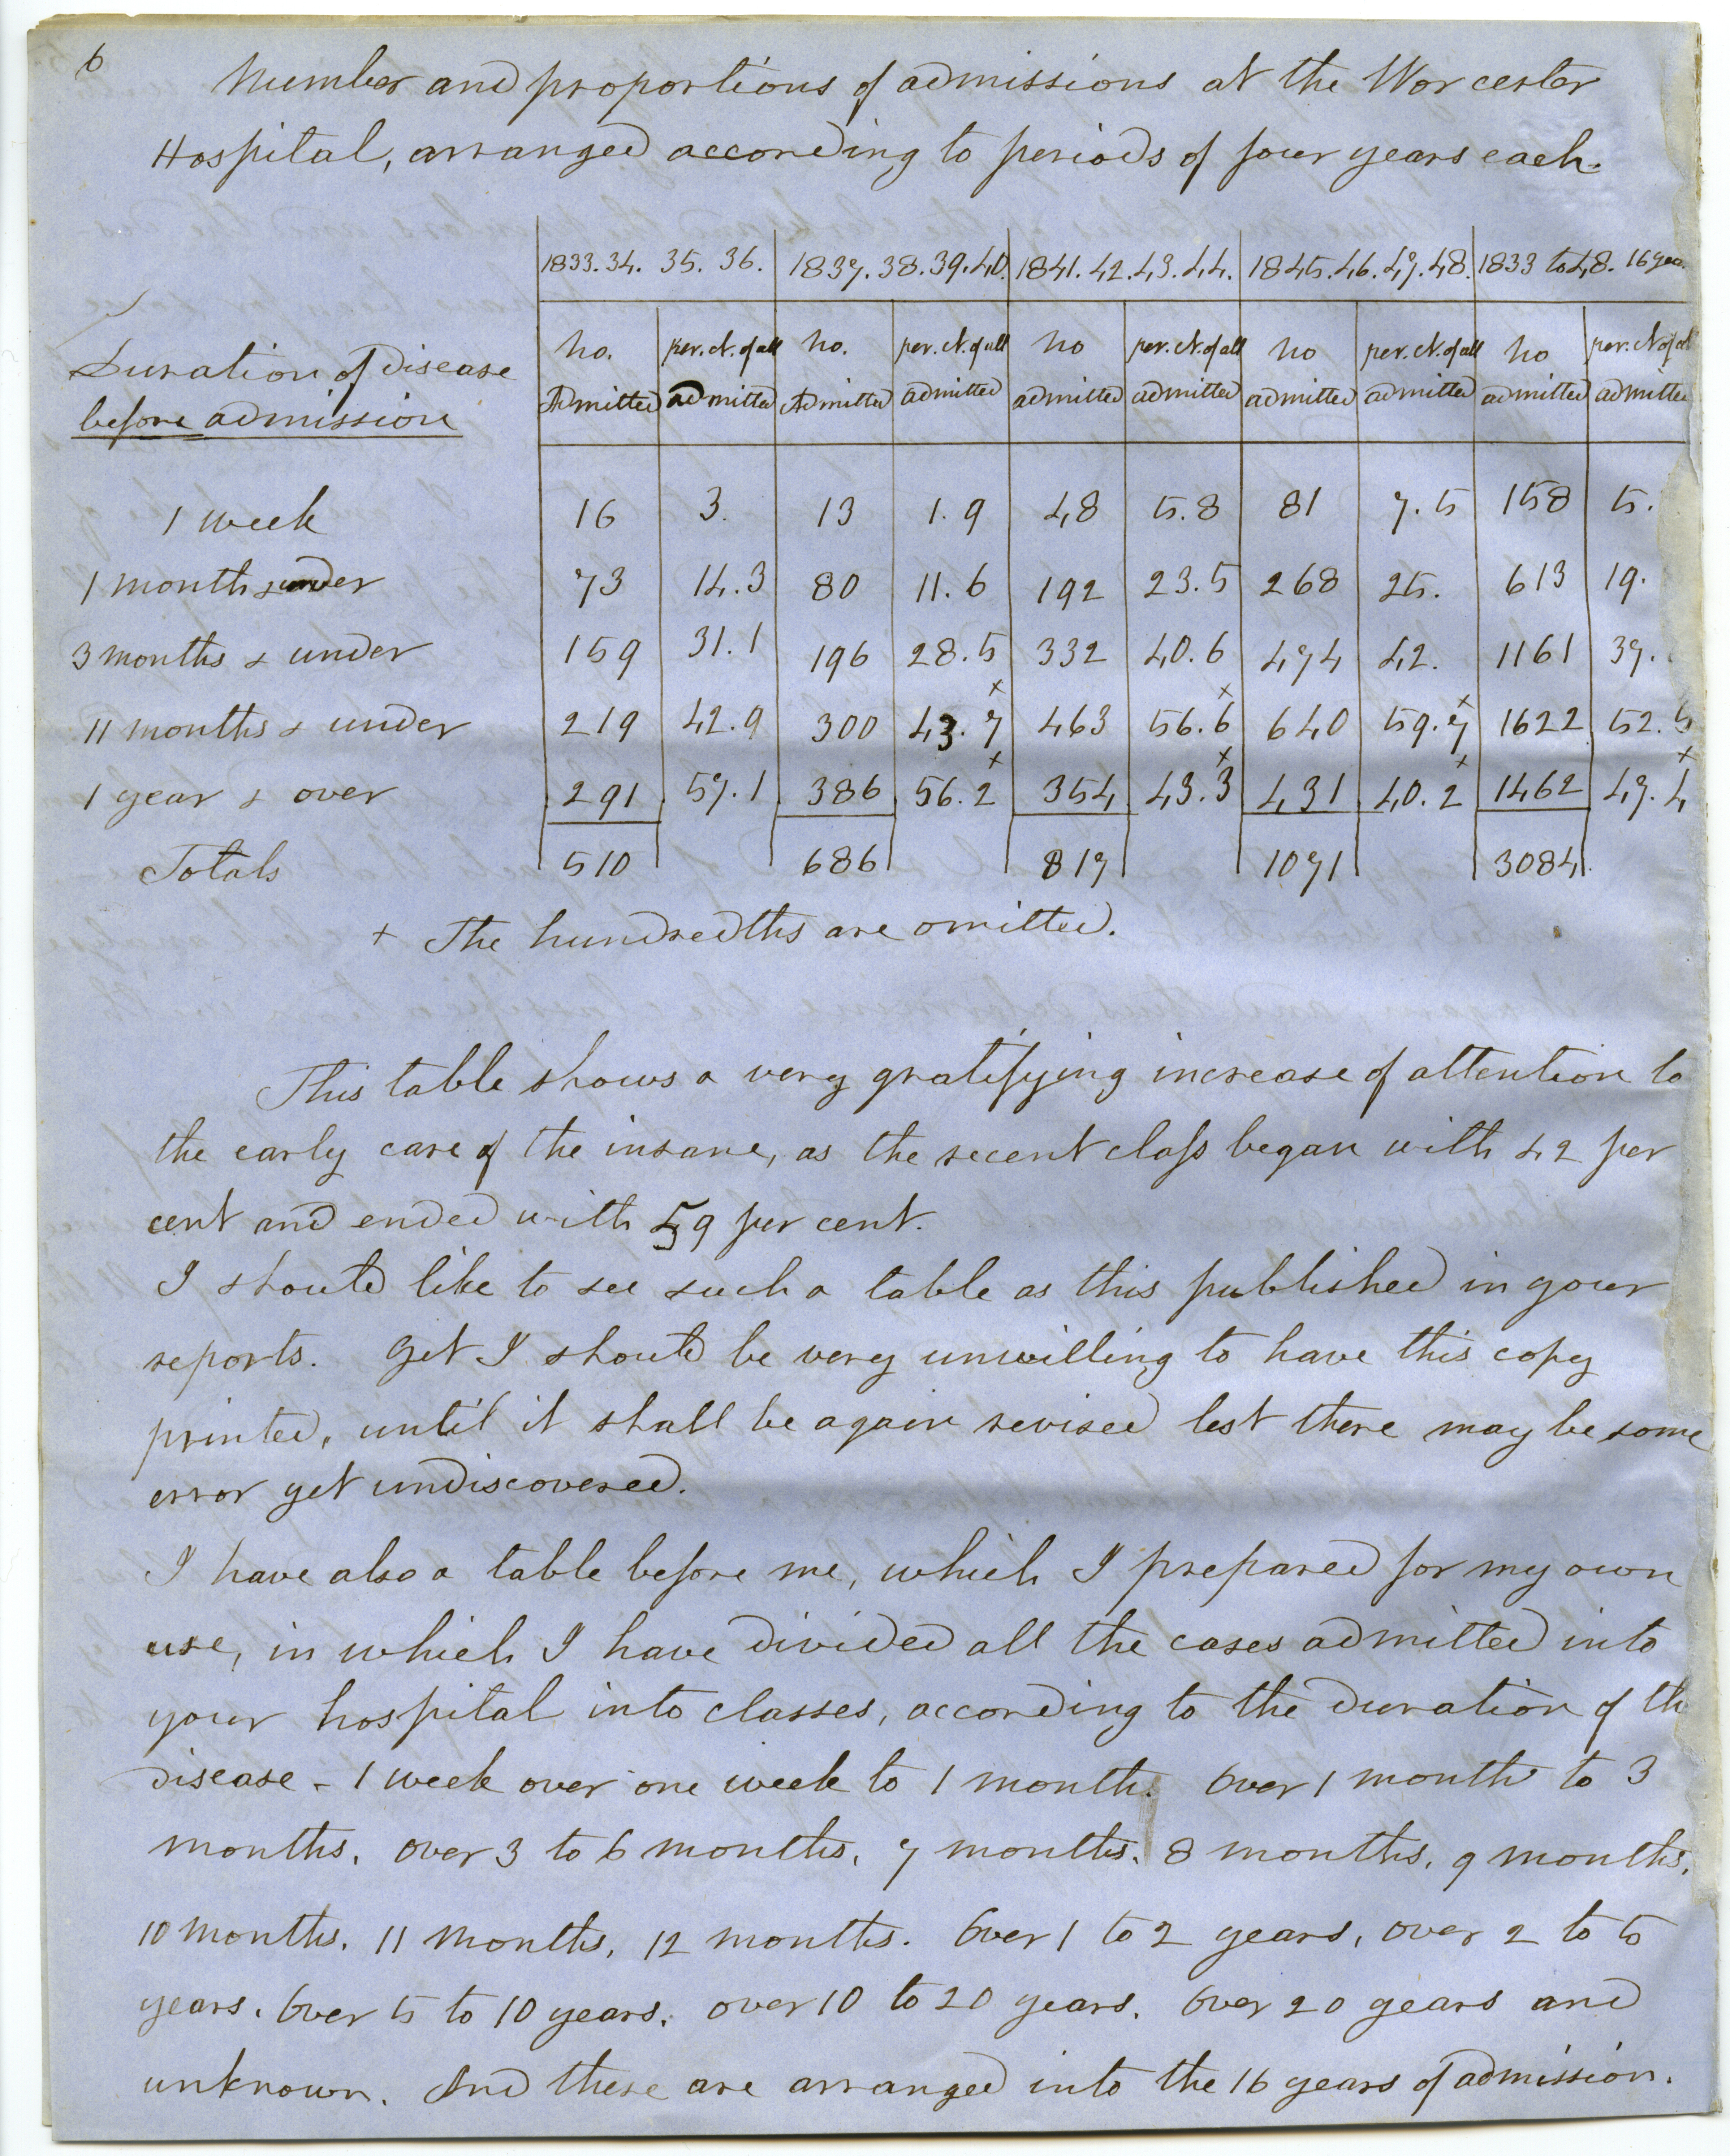 6
Number and proportions of admissions at the Worcester
Hospital, arranged according to periods of four years each.
1833. 34. 35. 36. 1837. 38. 39. 40. 1841. 42. 43. 44. 1845. 46. 47. 48. 1833 to 48. 16 yea
Duration of Disease no. per. ct. of all no. per. ct. of all no per. ct. of all no per. ct. of all no per. ct. of al
before admission Admitted admitted Admitted admitted admitted admitted admitted admitted admitted admitte
1 week 16 3. 13 1.9 48 5.8 81 7.5 158 5.
1 month & under 73 14.3 80 11.6 192 23.5 268 25. 613 19.
3 months & under 159 31.1 196 28.5 332 40.6 474 42. 1161 37.
11 months & under 219 42.9 300 43.7+ 463 56.6+ 640 59.7+ 1622 52.5
1 year & over 291 57.1 386 56.2+ 354 43.3+ 431 40.2+ 1462 47.4+
Totals 510 686 817 1071 3084
+ The hundredths are omitted.
This table shows a very gratifying increase of attention to
the early care of the insane, as the recent class began with 42 per
cent and ended with 59 per cent.
I should like to see such a table as this published in your
reports. Yet I should be very unwilling to have this copy
printed, until it shall be again revised lest there may be some
error yet undiscovered.
I have also a table before me, which I prepared for my own
use, in which I have divided all the cases admitted into
your hospital into classes, according to the duration of th
disease - 1 week over one week to 1 month. Over 1 month to 3
months. over 3 to 6 months. 7 months. 8 months. 9 months.
10 months. 11 months. 12 months. Over 1 to 2 years, over 2 to 5
years. Over 5 to 10 years. over 10 to 20 years. Over 20 years and
unknown. And these are arranged into the 16 years of admission.